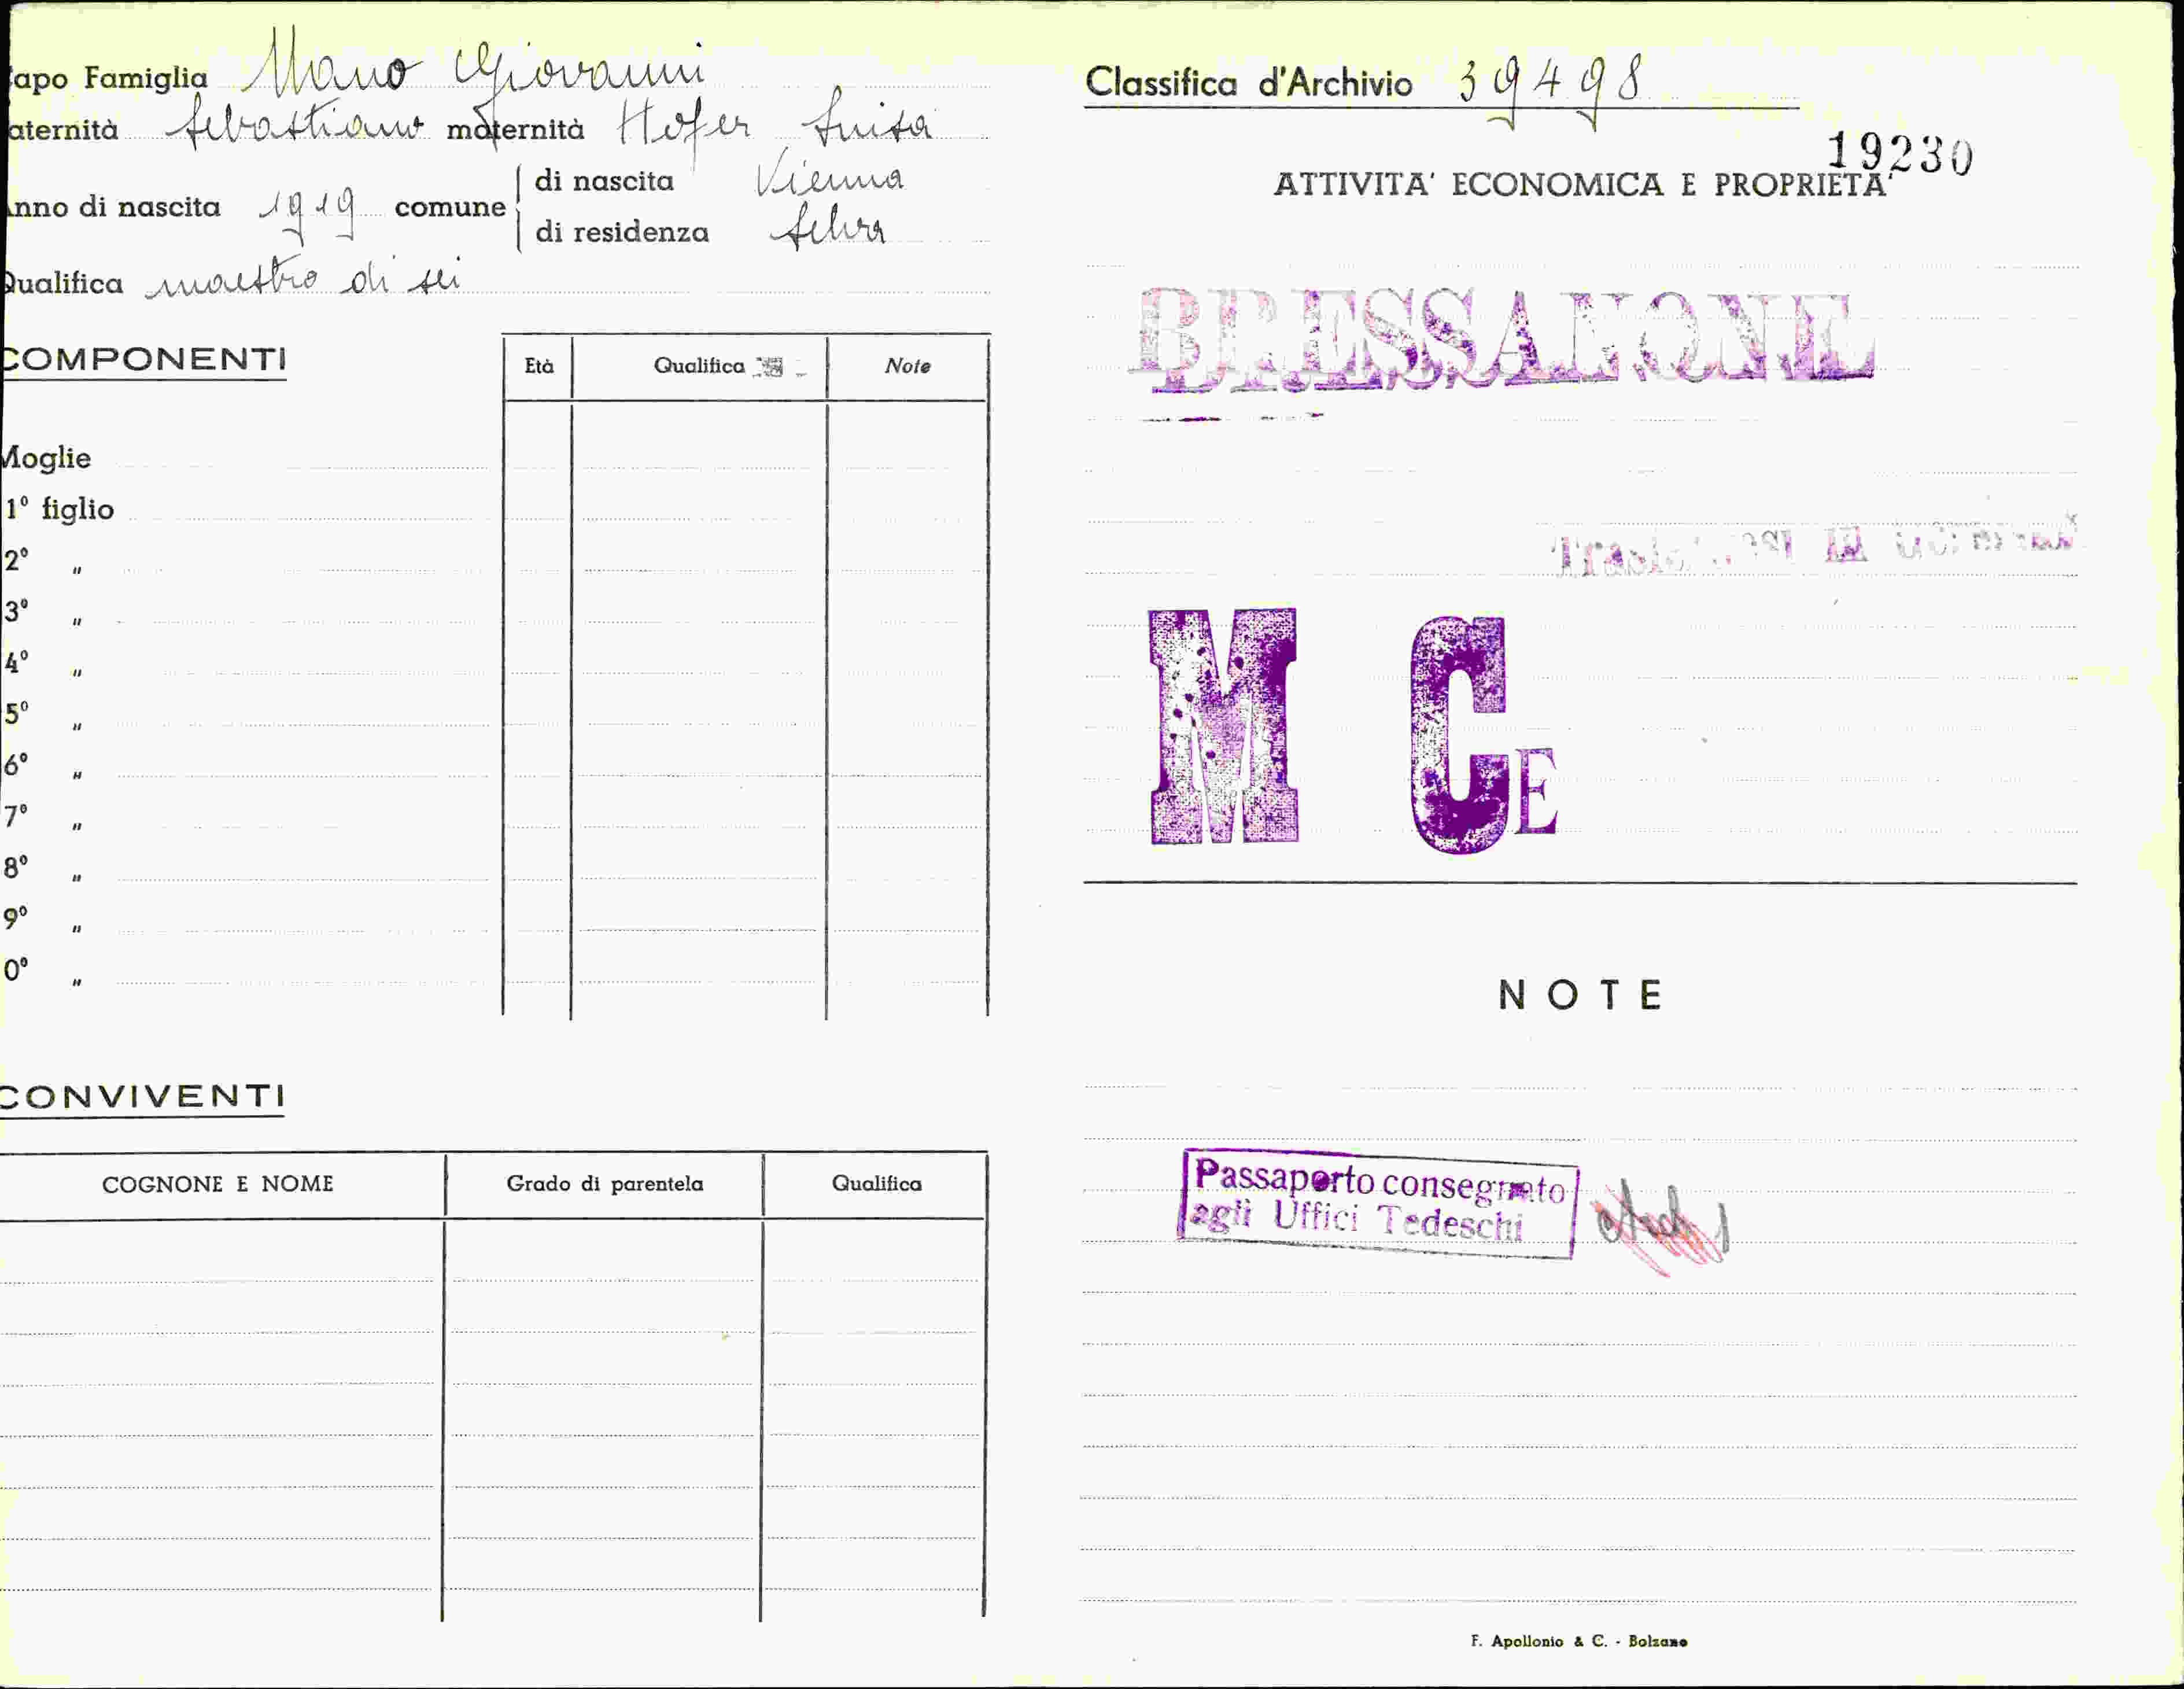 apo Famiglia Mano Giovanni
aternità Sebastiano maternità Hofer Luisa
nno di nascita 1919 comune di nascita Vienna
di residenza Selva
Qualifica maestro di sci
COMPONENTI
Età Qualifica Note
Moglie
1º figlio
2º "
3º "
4º "
5º "
6º "
7º "
8º "
9º "
0º "
CONVIVENTI
COGNONE E NOME Grado di parentela Qualifica
Classifica d'Archivio 39498
19230
ATTIVITA' ECONOMICA E PROPRIETA'
BRESSANONE
M CE
NOTE
Passaporto consegnato
agli Uffici Tedeschi
F. Apollonio & C. - Bolzano